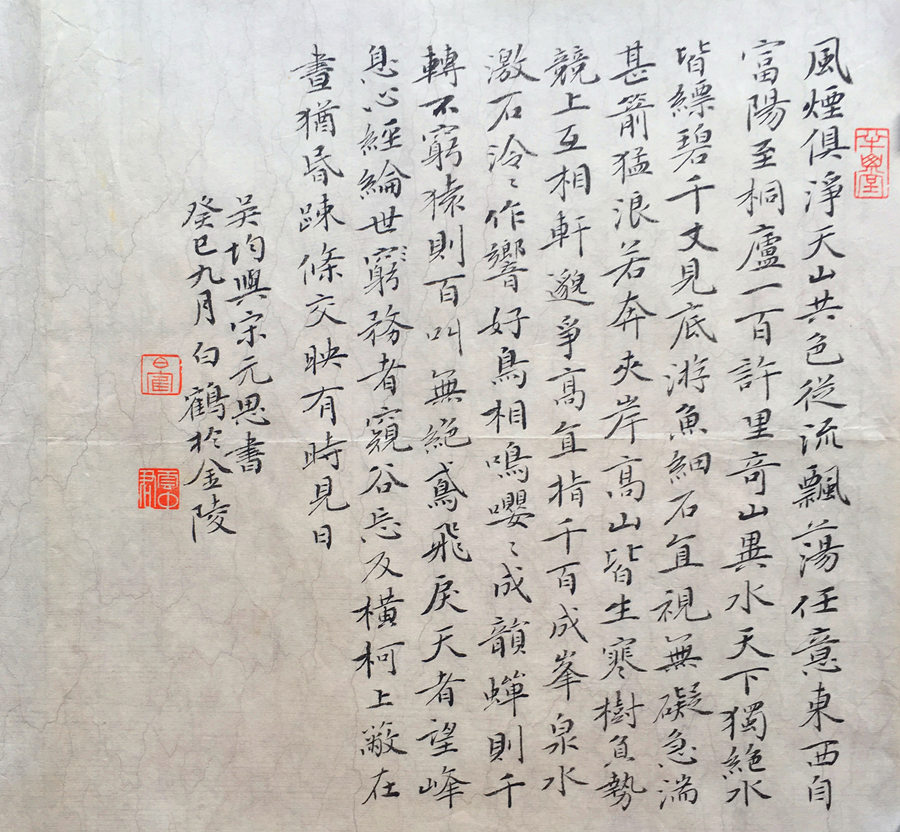 風煙俱淨天山共色從流飄蕩任意東西自
富陽至桐廬一百許里奇山異水天下獨絕水
皆縹碧千丈見底游魚細石直視無礙急湍
甚箭猛浪若奔夾岸高山皆生寒樹負勢
競上互相軒邈爭高直指千百成峯泉水
激石泠〻作響好鳥相鳴嚶〻成韻蟬則千
轉不窮猿則百叫無絕鳶飛戾天者望峰
息心經綸世窮務者窺谷忘反橫柯上蔽在
晝猶昏疎條交映有時見日
吳均與宋元思書
癸巳九月白鶴於金陵
雲中君